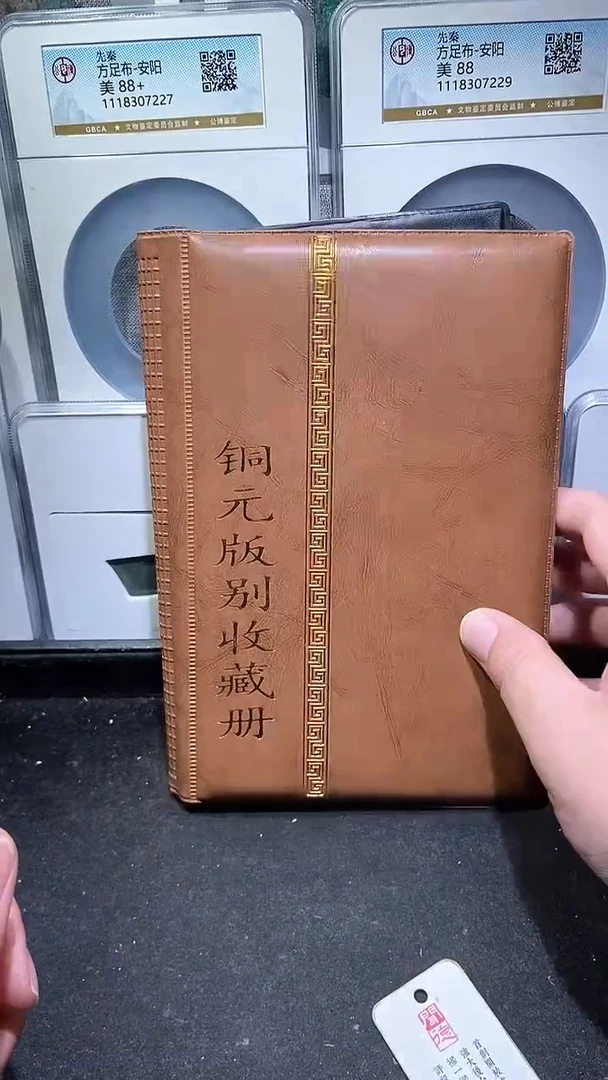 先秦
方足布-安阳
美 88+
1118307227
GBCA ★ 文物鉴定委员会监制 ★ 公博鉴定
先秦
方足布-安阳
美 88
1118307229
GBCA ★ 文物鉴定委员会监制 ★ 公博鉴定
铜元版别收藏册